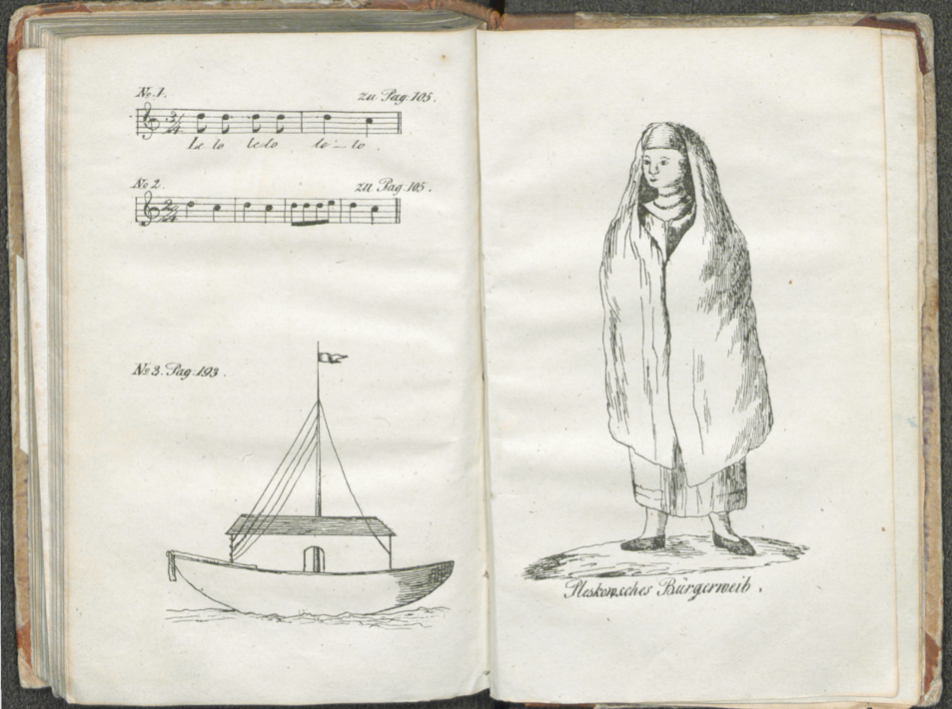 No. 1.
zu Pag. 105.
Le lo le lo le - lo
No 2.
zu Pag. 105.
No 3. Pag. 193.
Pleskowsches Bürgerweib.